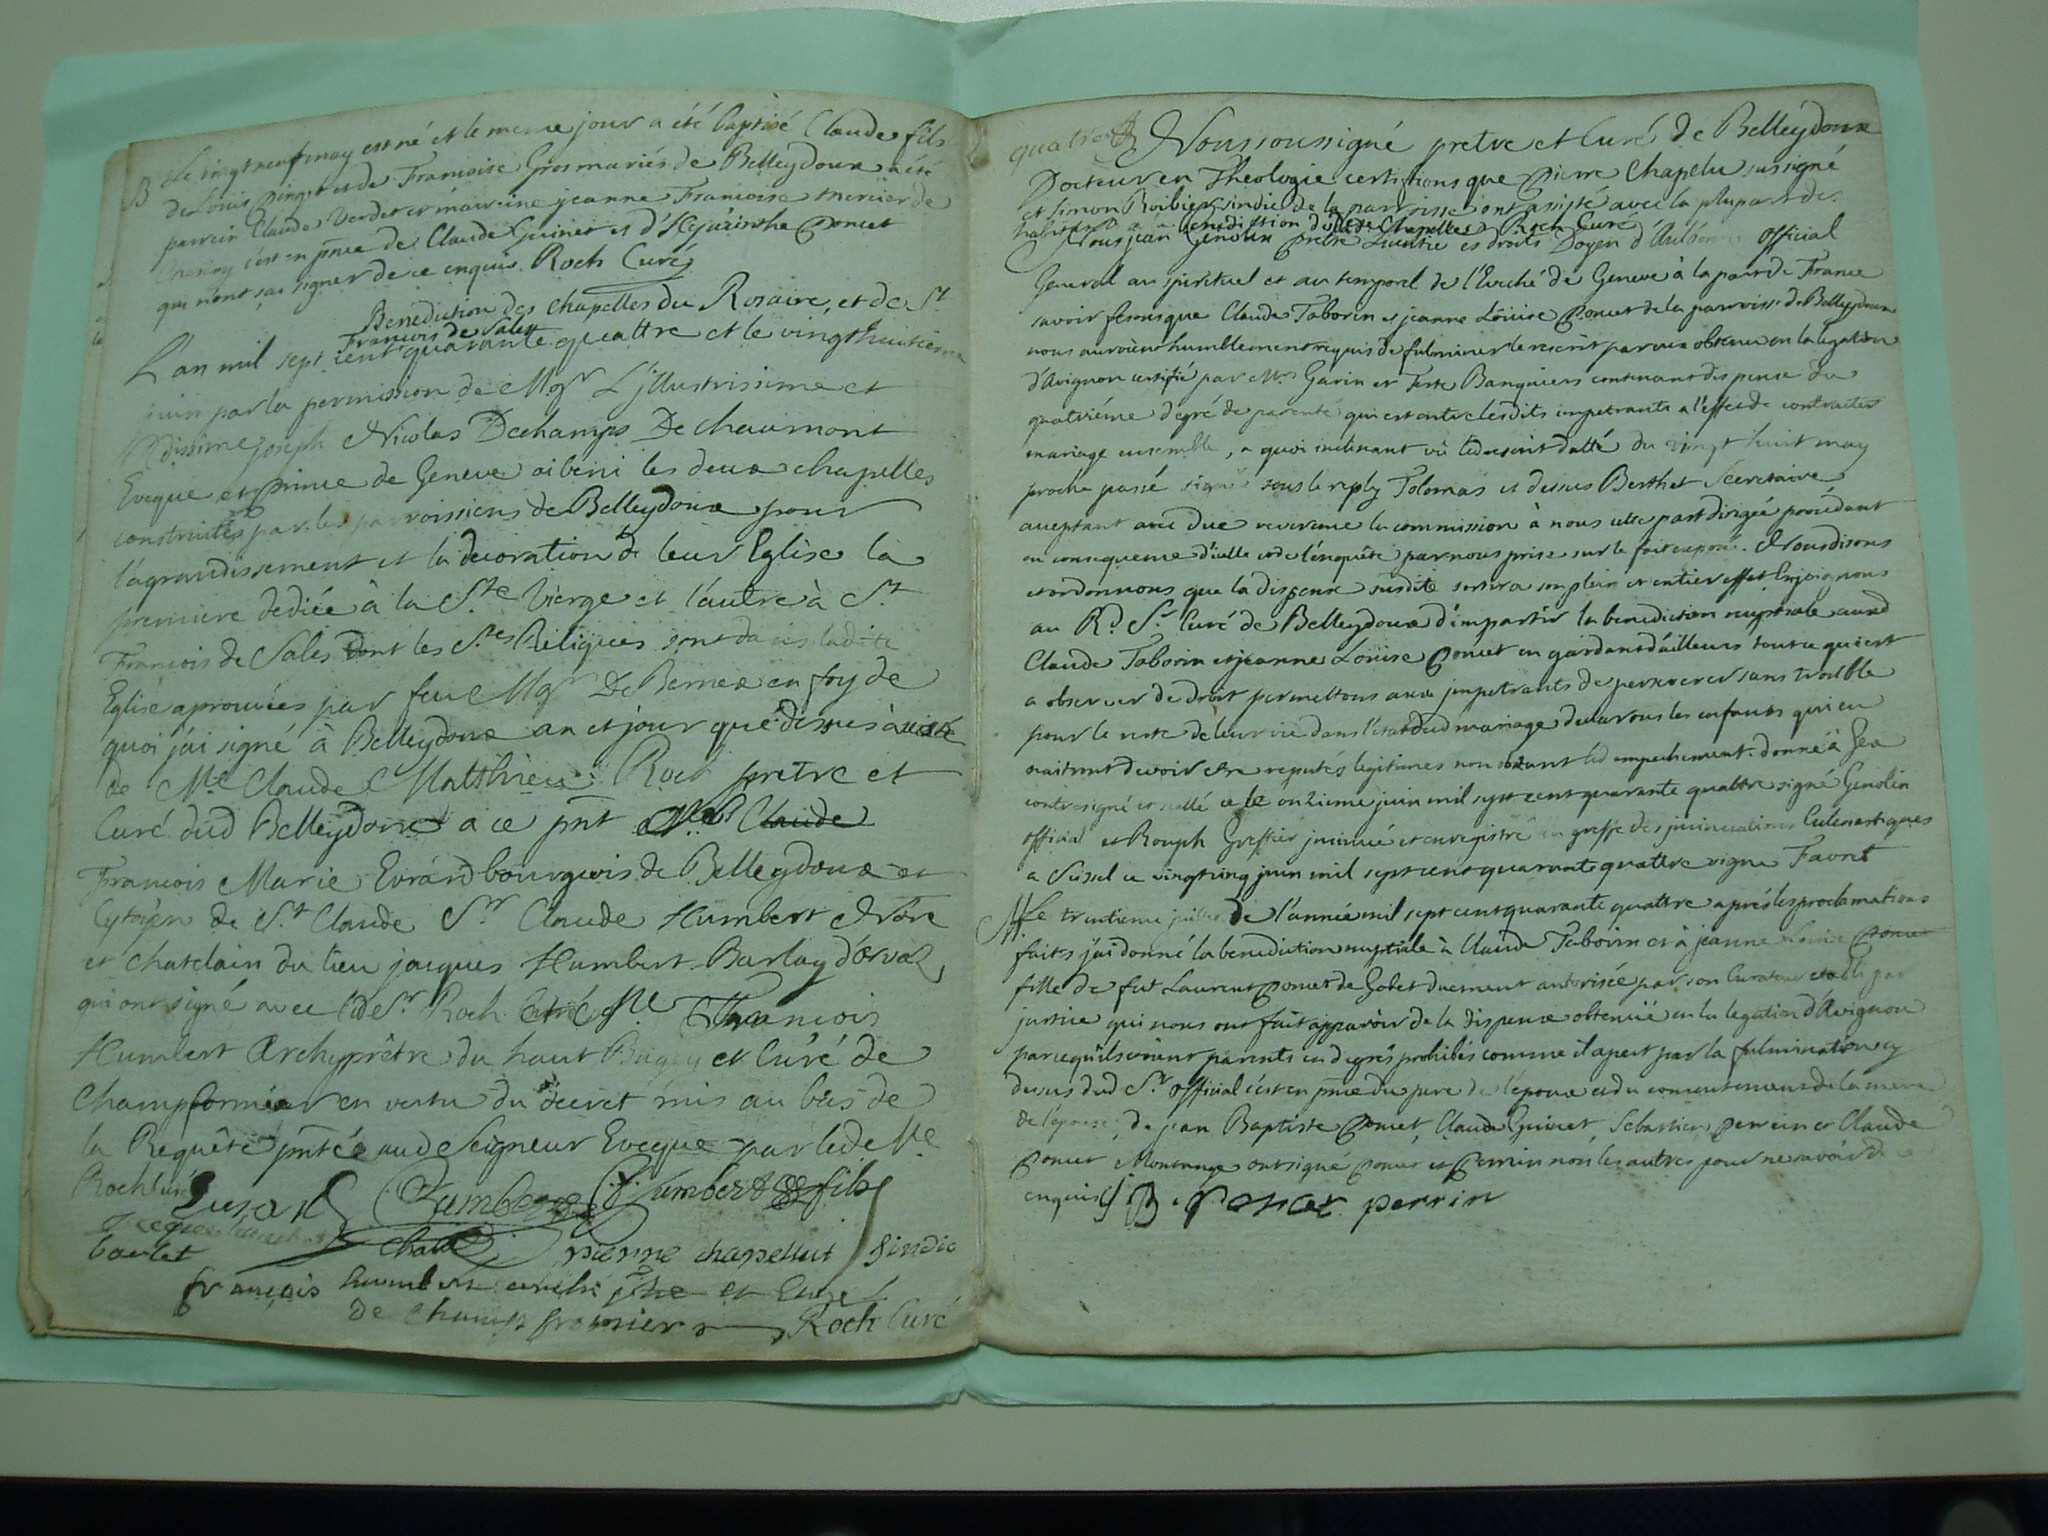 B Le vingt neuf may est né et le meme jour a été baptisé Claude fils
de Louis et de Francoise Gros mariés de Belleydoux a été
parrein Claude Verdet et marreine jeanne Francoise mercier de
c'est en pnce de Claude Guinet et d'Hyacinthe Poncet
qui n'ont sçu signer de ce enquis. Roch Curé
Benediction des chapelles du Rosaire, et de St
Francois de Sales
L'an mil sept cent quarante quattre et le vingt huitieme
juin par la permission de Mgr L'jllustrissime et
Rdissime joseph Nicolas Dechamps De chaumont
Eveque et Prince de Geneve ai beni les deux chapelles
construites par les parroissiens de Belleydoux pour
l'agrandissement et la decoration de leur Eglise la
premiere dediée à la Ste Vierge et l'autre à St
Francois de Sales dont les Stes Reliques sont dans ladite
Eglise aprouvées par feu Mgr De Bernex en foy de
quoi j'ai signé à Belleydoux an et jour que dessus
de Mre Claude Matthieu Roch pretre et
Curé dud Belleydoux a ce pnt Mre Claude
Francois Marie Evrard bourgeois de Belleydoux et
Cytoyen de St Claude Sr Claude Humbert Nore
et chatelain du lieu jacques Humbert Barlay d'orvaz,
qui ont signé avec led Sr Roch Curé Mre Francois
Humbert Archyprêtre du haut Bugey et Curé de
Champfromier en vertu du decret mis au bas de
la Requête pntée aud Seigneur Eveque par led Mre
Roch Curé
Evrard Humbert Humbert fils
pierre chapellut sindic
francois humbert archiptre et Curé
de champfromier Roch Curé
Nous soussigné pretre et Curé de Belleydoux
Docteur en Theologie certifions que Pierre Chapelu sussigné
et Simon Roibier sindic de la parroisse ont assisté avec la plupart des
habitans a la benediction d Chapelles Roch Curé
Nous jean Genolin Pretre Licentié es droits Doyen d'Aubonne Official
General au spirituel et au temporel de l'Eveché de Geneve à la part de France
savoir fesons que Claude Taborin et jeanne Louise Poncet de la parroisse de Belleydoux
nous auroient humblement requis de fulminer le rescrit par eux obtenu en la legation
d'Avignon certifié par Mrs Garin et Teste Banquiers contenant dispense du
quatriéme degré de parenté qui est entre lesdits impetrants a l'effet de contracter
mariage ensemble, a quoi inclinant vû led rescrit datté du vingt huit may
proche passé signé sous le reply Tolomas et dessus Berthet Secretaire
acceptant avec due reverence la commission à nous cette part dirigée procédant
en consequence d'icelle et de l'enquête par nous prise sur le fait exposé. Nous disons
et ordonnons que la dispense susdite sortira son plein et entier effet Enjoignons
au Rd Sr Curé de Belleydoux d'impartir la benediction nuptiale auxd
Claude Taborin et jeanne Louise Poncet en gardant d'ailleurs tout ce qui est
a observer de droit permettons aux jmpetrants de perseverer sans trouble
pour le reste de leur vie dans l'état dud mariage declarons les enfants qui en
naitront devoir etre reputés legitimes non obstant led empechement. donné à Gex
contresigné et scellé ce le onzieme juin mil sept cent quarante quattre signé Genolin
official et Rouph Greffier jnsinué et enregistré au greffe des jnsinuations Eclesiastiques
a Seissel ce vingt cinq juin mil sept cent quarante quattre signé Favre
M Le trentieme juillet de l'année mil sept cent quarante quattre aprés les proclamations
faites j'ai donné la benediction nuptiale à Claude Taborin et à jeanne Louise Poncet
fille de fut Laurent Poncet de Gobet duement autorisée par son Curateur établi par
justice qui nous ont fait apparoir de la dispense obtenuë en la legation d'Avignon
parcequ'ils etoient parents en degrés prohibés comme il apert par la fulmination cy
dessus dud Sr official c'est en pnce du pere de l'epoux et du consentement de la mere
de l'epouse, de jean Baptiste Poncet, Claude Guinet, Sebastien perrein et Claude
Poncet Montange ont signé Poncet et Perrin non les autres pour ne savoir de ce
enquis J B. Poncet perrin